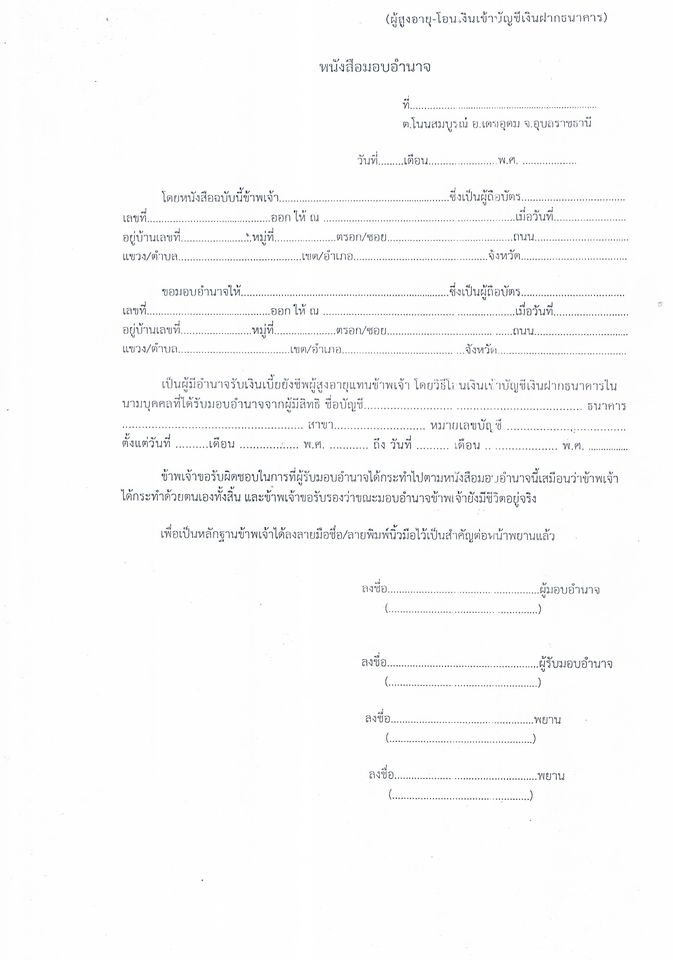 (ผู้สูงอายุ-โอนเงินเข้าบัญชีเงินฝากธนาคาร)
หนังสือมอบอำนาจ
ที่............................................................
ต.โนนสมบูรณ์ อ.เดชอุดม จ.อุบลราชธานี
วันที่.........เดือน........................พ.ศ. ...................
โดยหนังสือฉบับนี้ข้าพเจ้า............................................................ซึ่งเป็นผู้ถือบัตร....................................
เลขที่...........................................ออก ให้ ณ ..................................................................เมื่อวันที่.........................
อยู่บ้านเลขที่........................หมู่ที่......................ตรอก/ซอย............................................ถนน.................................
แขวง/ตำบล...........................................เขต/อำเภอ...............................................จังหวัด.....................................
ขอมอบอำนาจให้.........................................................................ซึ่งเป็นผู้ถือบัตร....................................
เลขที่...........................................ออก ให้ ณ ..................................................................เมื่อวันที่.........................
อยู่บ้านเลขที่.........................หมู่ที่......................ตรอก/ซอย............................................ถนน.................................
แขวง/ตำบล.......................................เขต/อำเภอ...........................................จังหวัด.............................................
เป็นผู้มีอำนาจรับเงินเบี้ยยังชีพผู้สูงอายุแทนข้าพเจ้า โดยวิธีโอนเงินเข้าบัญชีเงินฝากธนาคารใน
นามบุคคลที่ได้รับมอบอำนาจจากผู้มีสิทธิ ชื่อบัญชี............................... ............................................ ธนาคาร
............................................................... สาขา................................ หมายเลขบัญชี ..........................................
ตั้งแต่วันที่ ..........เดือน ..................... พ.ศ. ............ ถึง วันที่ .......... เดือน .......................... พ.ศ. ..............
ข้าพเจ้าขอรับผิดชอบในการที่ผู้รับมอบอำนาจได้กระทำไปตามหนังสือมอบอำนาจนี้เสมือนว่าข้าพเจ้า
ได้กระทำด้วยตนเองทั้งสิ้น และข้าพเจ้าขอรับรองว่าขณะมอบอำนาจข้าพเจ้ายังมีชีวิตอยู่จริง
เพื่อเป็นหลักฐานข้าพเจ้าได้ลงลายมือชื่อ/ลายพิมพ์นิ้วมือไว้เป็นสำคัญต่อหน้าพยานแล้ว
ลงชื่อ.....................................................ผู้มอบอำนาจ
(.....................................................)
ลงชื่อ.....................................................ผู้รับมอบอำนาจ
(.....................................................)
ลงชื่อ..................................................พยาน
(..................................................)
ลงชื่อ..................................................พยาน
(................................................)